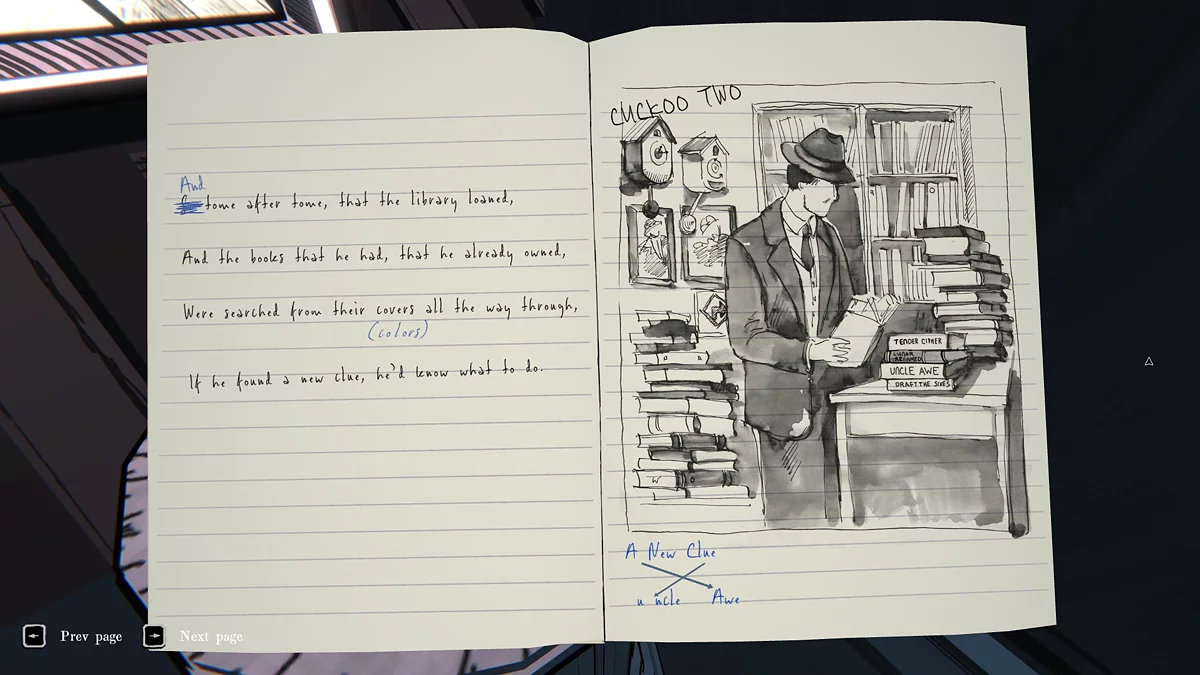 And
tome after tome, that the library loaned,
And the books that he had, that he already owned,
Were searched from their covers all the way through,
(colors)
If he found a new clue, he'd know what to do.
CUCKOO TWO
TENDER CIPHER
LUNAR
RENAMED
UNCLE AWE
DRAFT THE SIXES
W
A New Clue
u ncle Awe
Prev page
Next page